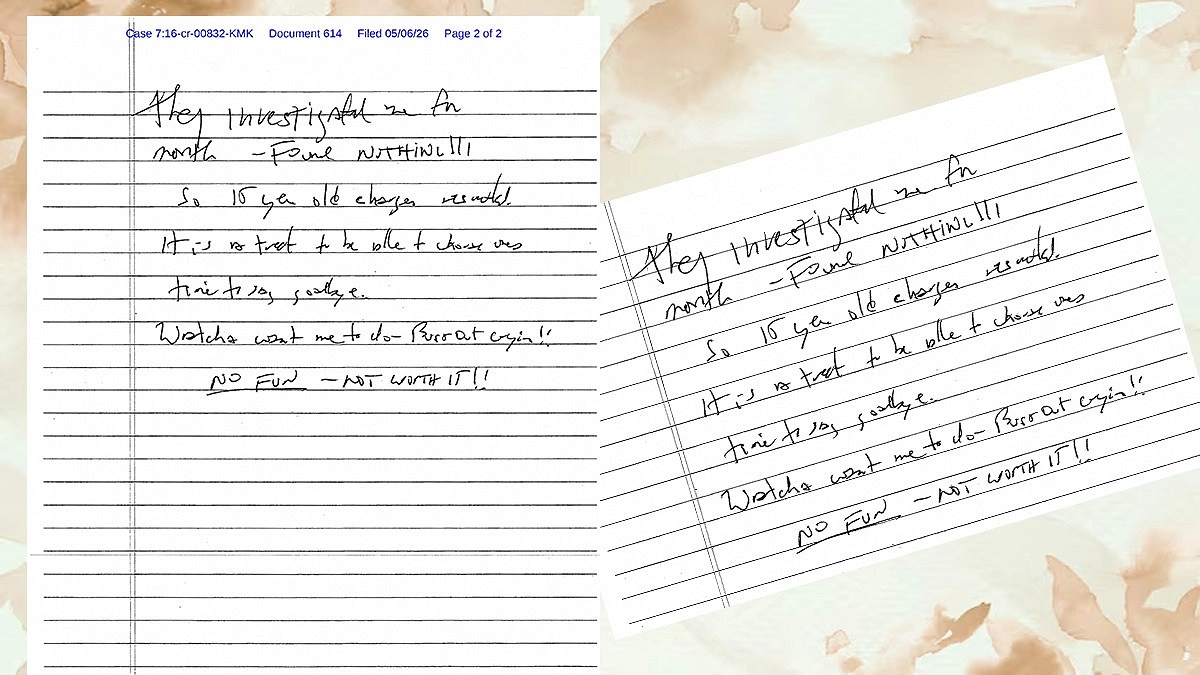 Case 7:16-cr-00832-KMK Document 614 Filed 05/06/26 Page 2 of 2
They investigated me for
month - Found NOTHING!!!
So 15 year old charges resulted.
It is a treat to be able to choose ones
time to say goodbye.
Watcha want me to do - Burst Out cryin!!
NO FUN - NOT WORTH IT!!
They investigated me for
month - Found NOTHING!!!
So 15 year old charges resulted.
It is a treat to be able to choose ones
time to say goodbye.
Watcha want me to do - Burst Out cryin!!
NO FUN - NOT WORTH IT!!